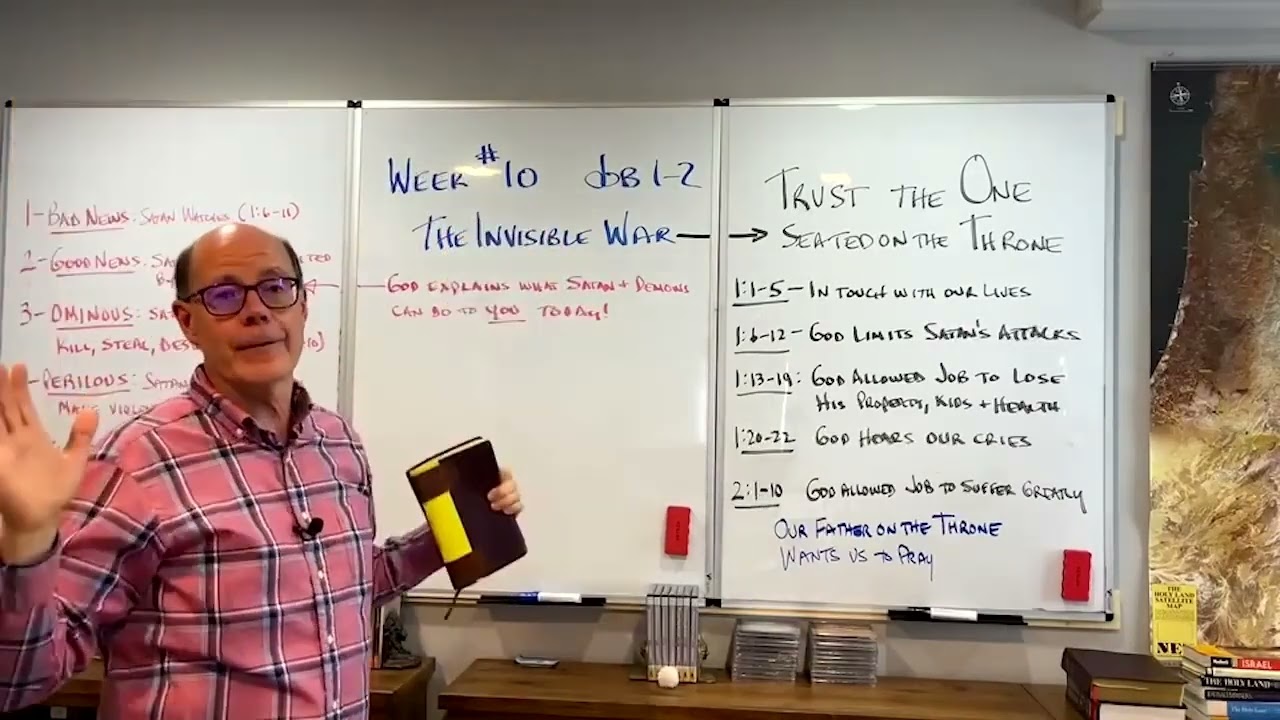 1- BAD NEWS: SATAN WATCHES (1:6-11)
2- GOOD NEWS:
3- OMINOUS:
KILL, STEAL,
PERILOUS: SATAN
MAKE
WEEK #10 JOB 1-2
THE INVISIBLE WAR
GOD EXPLAINS WHAT SATAN + DEMONS
CAN DO TO YOU TODAY!
TRUST THE ONE
SEATED ON THE THRONE
1:1-5 - IN TOUCH WITH OUR LIVES
1:6-12 - GOD LIMITS SATAN'S ATTACKS
1:13-19: GOD ALLOWED JOB TO LOSE
HIS PROPERTY, KIDS + HEALTH
1:20-22 GOD HEARS OUR CRIES
2:1-10 GOD ALLOWED JOB TO SUFFER GREATLY
OUR FATHER ON THE THRONE
WANTS US TO PRAY
THE
HOLY LAND
SATELLITE
MAP
ISRAEL
THE HOLY LAND